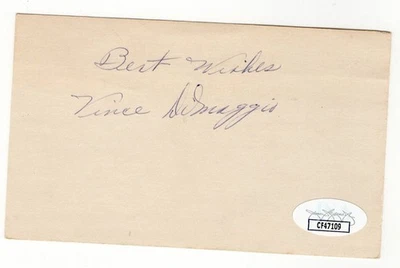 Best Wishes
Vince DiMaggio
CF47109